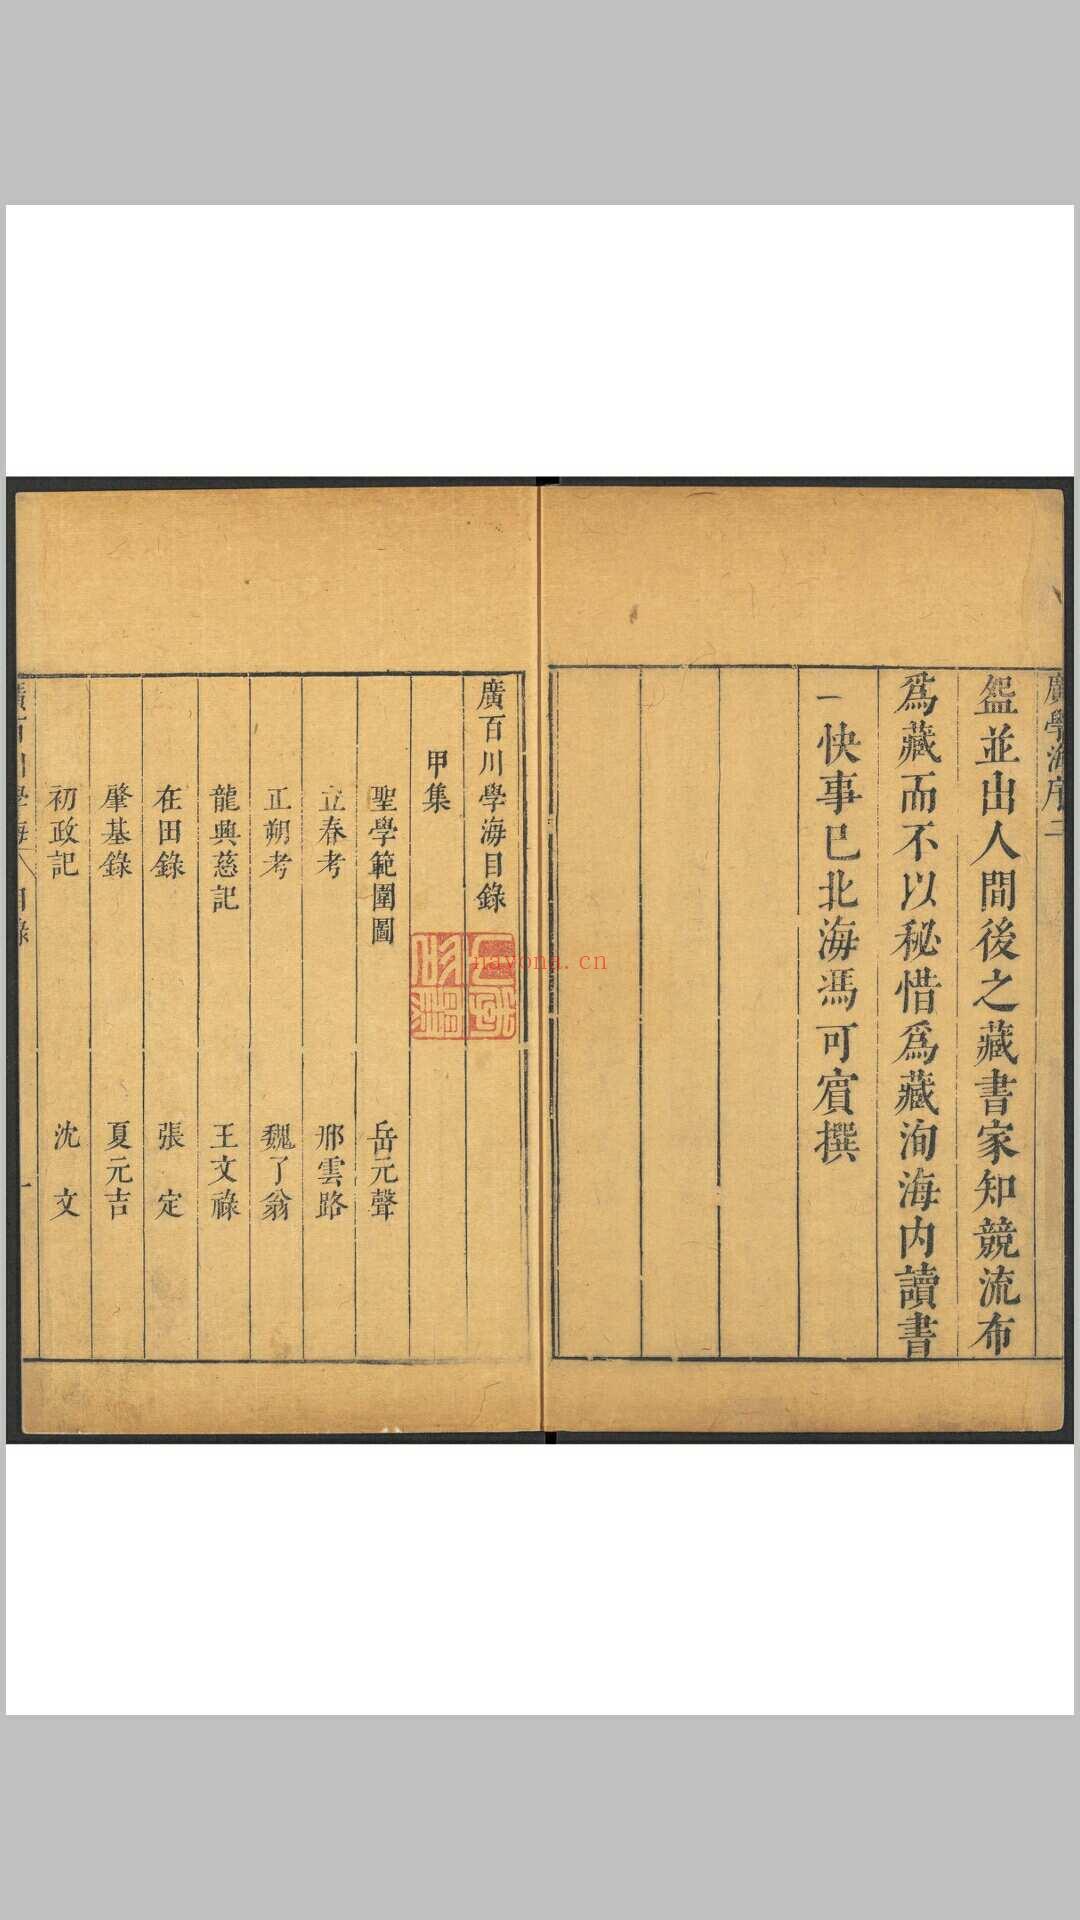 廣學海序二
盌並出人間後之藏書家知競流布
爲藏而不以秘惜爲藏洵海內讀書
一快事已北海馮可賓撰
廣百川學海目錄
甲集
聖學範圍圖 岳元聲
立春考 邢雲路
正朔考 魏了翁
龍興慈記 王文祿
在田錄 張定
肇基錄 夏元吉
初政記 沈文
廣百川學海 目錄 一
nayona.cn